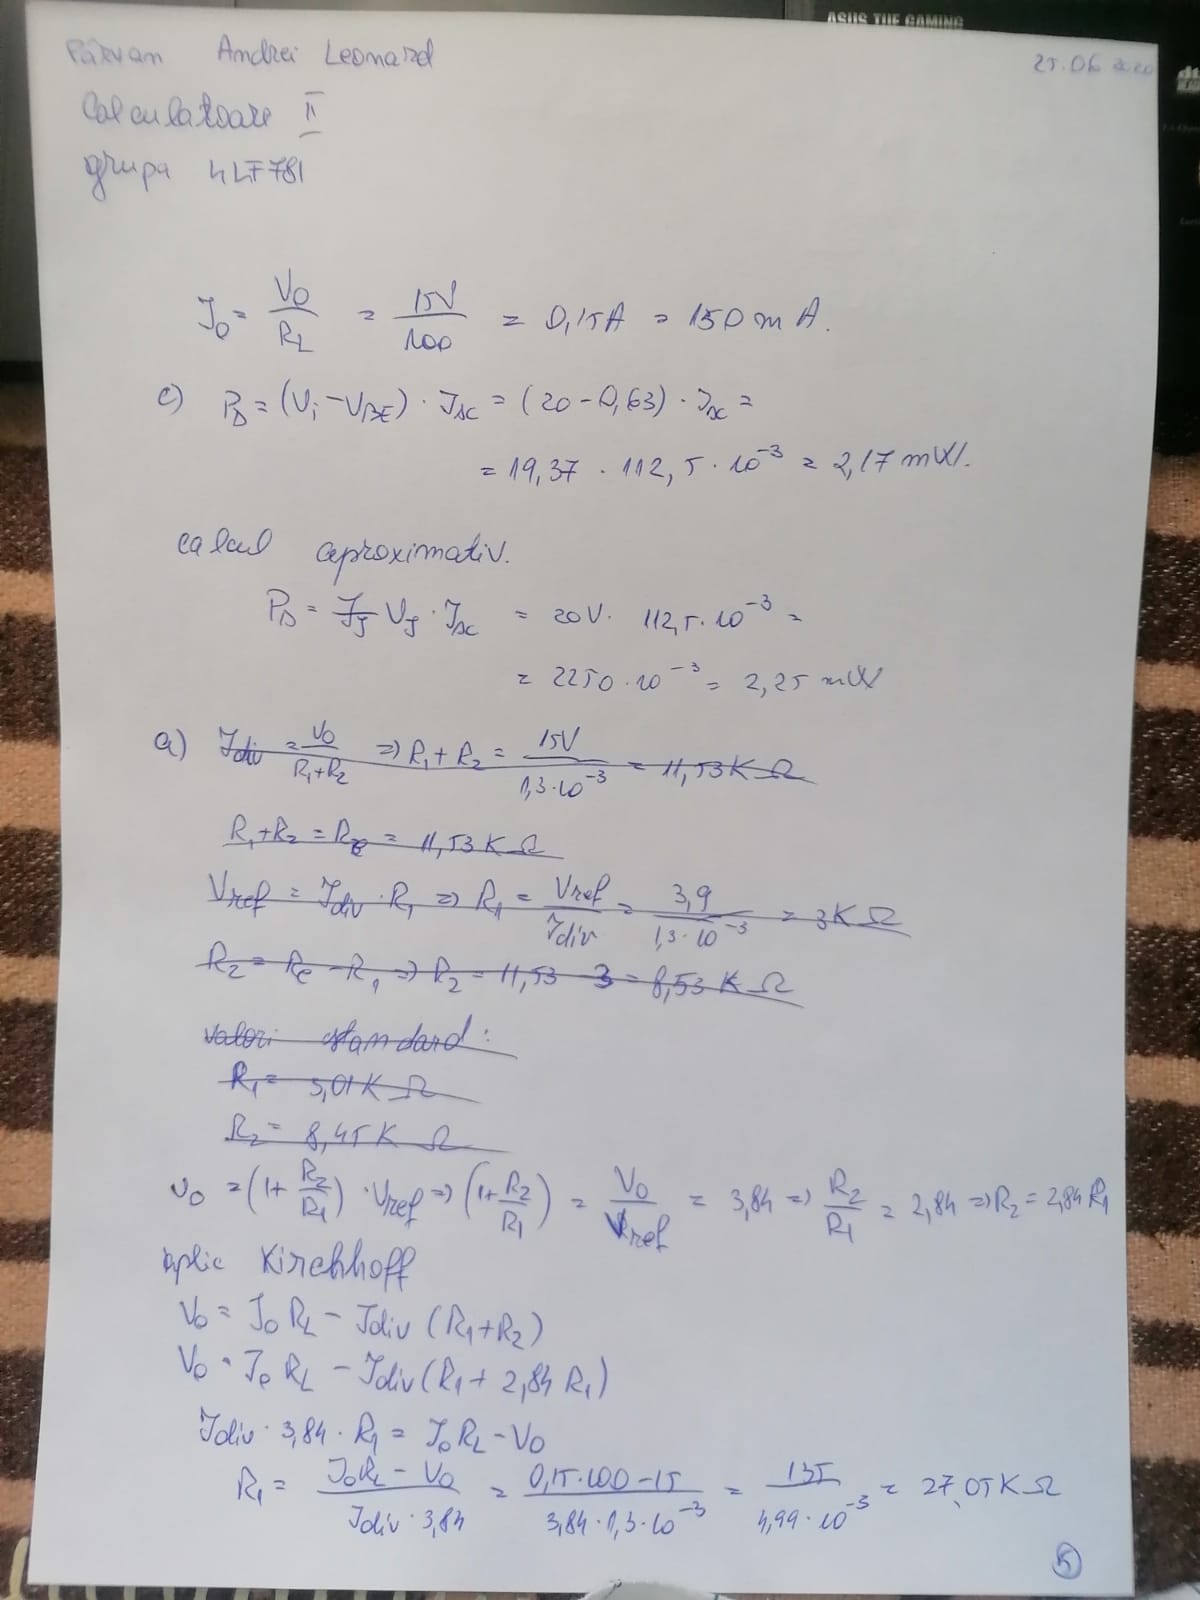 ASUS TUF GAMING
Pârvan Andrei Leonard
25.06.2020
Calculatoare II
grupa 4LF781
I₀ = V₀/R_L = 15V/100 = 0,15A = 150 mA.
c) P_D = (V_i - V_BE) · I_sc = (20 - 0,63) · I_sc =
= 19,37 · 112,5 · 10⁻³ = 2,17 mW.
calcul aproximativ.
P_D = V_I · I_sc = 20V · 112,5 · 10⁻³ =
= 2250 · 10⁻³ = 2,25 mW
a) I_div = V₀/(R₁+R₂) => R₁ + R₂ = 15V/(1,3·10⁻³) = 11,53 K Ω
R₁+R₂ = R_e = 11,53 K Ω
V_ref = I_div · R₁ => R₁ = V_ref/I_div = 3,9/(1,3·10⁻³) = 3K Ω
R₂ = R_e - R₁ => R₂ = 11,53 - 3 = 8,53 K Ω
valori standard :
R₁ = 3,01 K Ω
R₂ = 8,45 K Ω
V₀ = (1 + R₂/R₁) · V_ref => (1 + R₂/R₁) = V₀/V_ref = 3,84 => R₂/R₁ = 2,84 => R₂ = 2,84 R₁
aplic Kirchhoff
V₀ = I₀ R_L - I_div (R₁+R₂)
V₀ = I₀ R_L - I_div (R₁ + 2,84 R₁)
I_div · 3,84 · R₁ = I₀ R_L - V₀
R₁ = (I₀R_L - V₀)/(I_div · 3,84) = (0,15·100-15)/(3,84·1,3·10⁻³) = 135/(4,99·10⁻³) = 27,05 K Ω
5